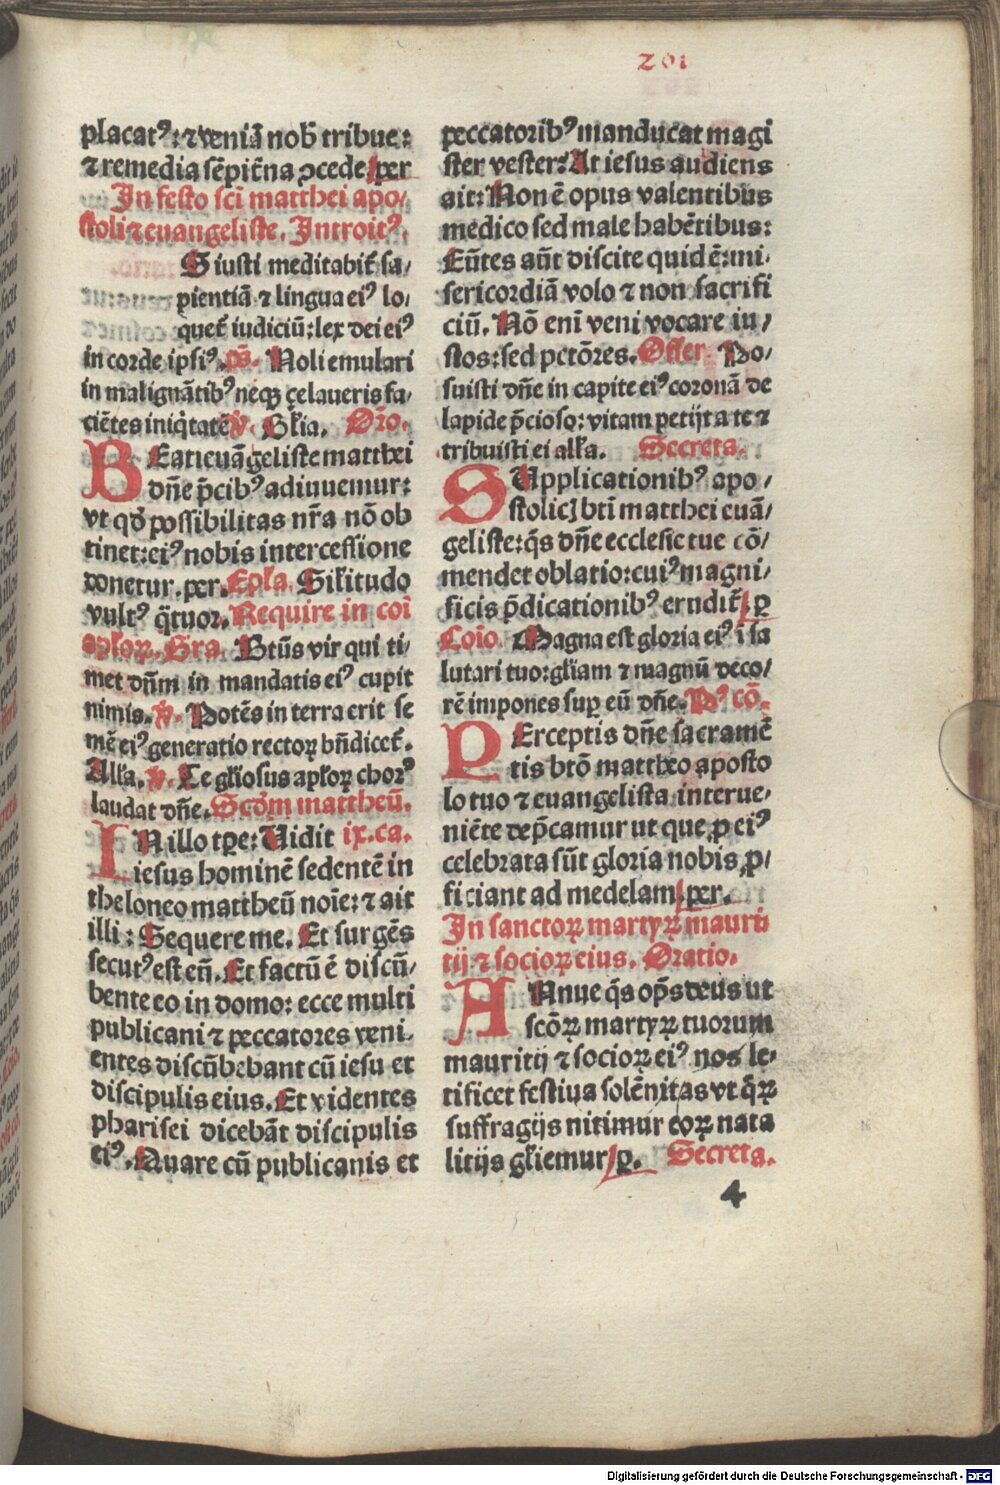 201
placatꝰ: ⁊ veniā nob̄ tribue:
⁊ remedia sēpit̄na ꝯcede per
In festo sc̄i matthei apo/
stoli ⁊ euangeliste. Introitꝰ.
Os iusti meditabit̄ sa/
pientiā ⁊ lingua eiꝰ lo/
quet̄ iudiciū: lex dei eiꝰ
in corde ipsiꝰ. p̄s. Noli emulari
in malignātibꝰ neqꝫ çelaueris fa/
ciētes iniq̇tatē ℣. Gl̄ia. Or̄o.
BEati euāgeliste matthei
dn̄e p̄cibꝰ adiuuemur:
vt qd̄ possibilitas nr̄a nō ob
tinet: eiꝰ nobis intercessione
donetur. per. Epl̄a. Sil̄itudo
vultꝰ q̄tuor. Require in cōi
apl̄oꝝ. Gra. Btūs vir qui ti/
met dn̄m in mandatis eiꝰ cupit
nimis. ℣. Potēs in terra erit se
mē eiꝰ generatio rectoꝝ bn̄dicet̄.
All̄a. ℣. Te gl̄iosus apl̄oꝝ chorꝰ
laudat dn̄e. Scd̄m mattheū.
IN illo tꝑe: Uidit ix.ca.
iesus hominē sedentē in
theloneo mattheū noīe: ⁊ ait
illi: Sequere me. Et surgēs
secutꝰ est eū. Et factū ē discū/
bente eo in domo: ecce multi
publicani ⁊ peccatores veni
entes discūbebant cū iesu et
discipulis eius. Et videntes
pharisei dicebāt discipulis
eiꝰ. Quare cū publicanis et
peccatoribꝰ manducat magi
ster vester? At iesus audiens
ait: Non ē opus valentibus
medico sed male habētibus:
Eūtes aūt discite quid ē: mi/
sericordiā volo ⁊ non sacrifi
ciū. Nō enī veni vocare iu/
stos: sed pctōres. Offer. Po/
suisti dn̄e in capite eiꝰ coronā de
lapide p̄cioso: vitam petijt a te ⁊
tribuisti ei all̄a. Secreta.
SUpplicationibꝰ apo/
stolicꝭ bt̄i matthei euā/
geliste: q̄s dn̄e ecclesie tue cō/
mendet oblatio: cuiꝰ magni/
ficis p̄dicationibꝰ erudit̄. ꝑ
Cōio. Magna est gloria eiꝰ ī sa
lutari tuo: gl̄iam ⁊ magnū deco/
rē impones suꝑ eū dn̄e. Pꝰ cō.
PErceptis dn̄e sacramē
tis btō mattheo aposto
lo tuo ⁊ euangelista interue/
niēte dep̄camur ut que ꝓ eiꝰ
celebrata sūt gloria nobis ꝓ/
ficiant ad medelam. per.
In sanctoꝝ martyꝝ mauri
tij ⁊ socioꝝ eius. Oratio.
ANnue q̄s op̄s deus ut
scōꝝ martyꝝ tuorum
mauritij ⁊ socioꝝ eiꝰ nos le/
tificet festiua solēnitas vt q̄ꝝ
suffragijs nitimur eoꝝ nata
litijs gl̄iemur ꝑ. Secreta.
4
Digitalisierung gefördert durch die Deutsche Forschungsgemeinschaft - DFG